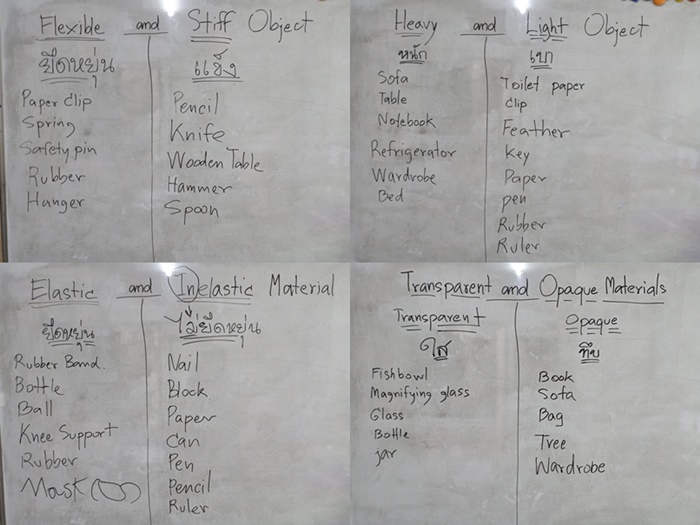 Flexible and Stiff Object
ยืดหยุ่น
แข็ง
Paper clip
Spring
Safety pin
Rubber
Hanger
Pencil
Knife
Wooden Table
Hammer
Spoon
Heavy and Light Object
หนัก
เบา
Sofa
Table
Notebook
Refrigerator
Wardrobe
Bed
Toilet paper
Clip
Feather
Key
Paper
pen
Rubber
Ruler
Elastic and Inelastic Material
ยืดหยุ่น
ไม่ยืดหยุ่น
Rubber Band.
Bottle
Ball
Knee Support
Rubber
Mask
Nail
Block
Paper
Can
Pen
Pencil
Ruler
Transparent and Opaque Materials
Transparent
ใส
Fishbowl
Magnifying glass
Glass
Bottle
jar
Opaque
ทึบ
Book
Sofa
Bag
Tree
Wardrobe